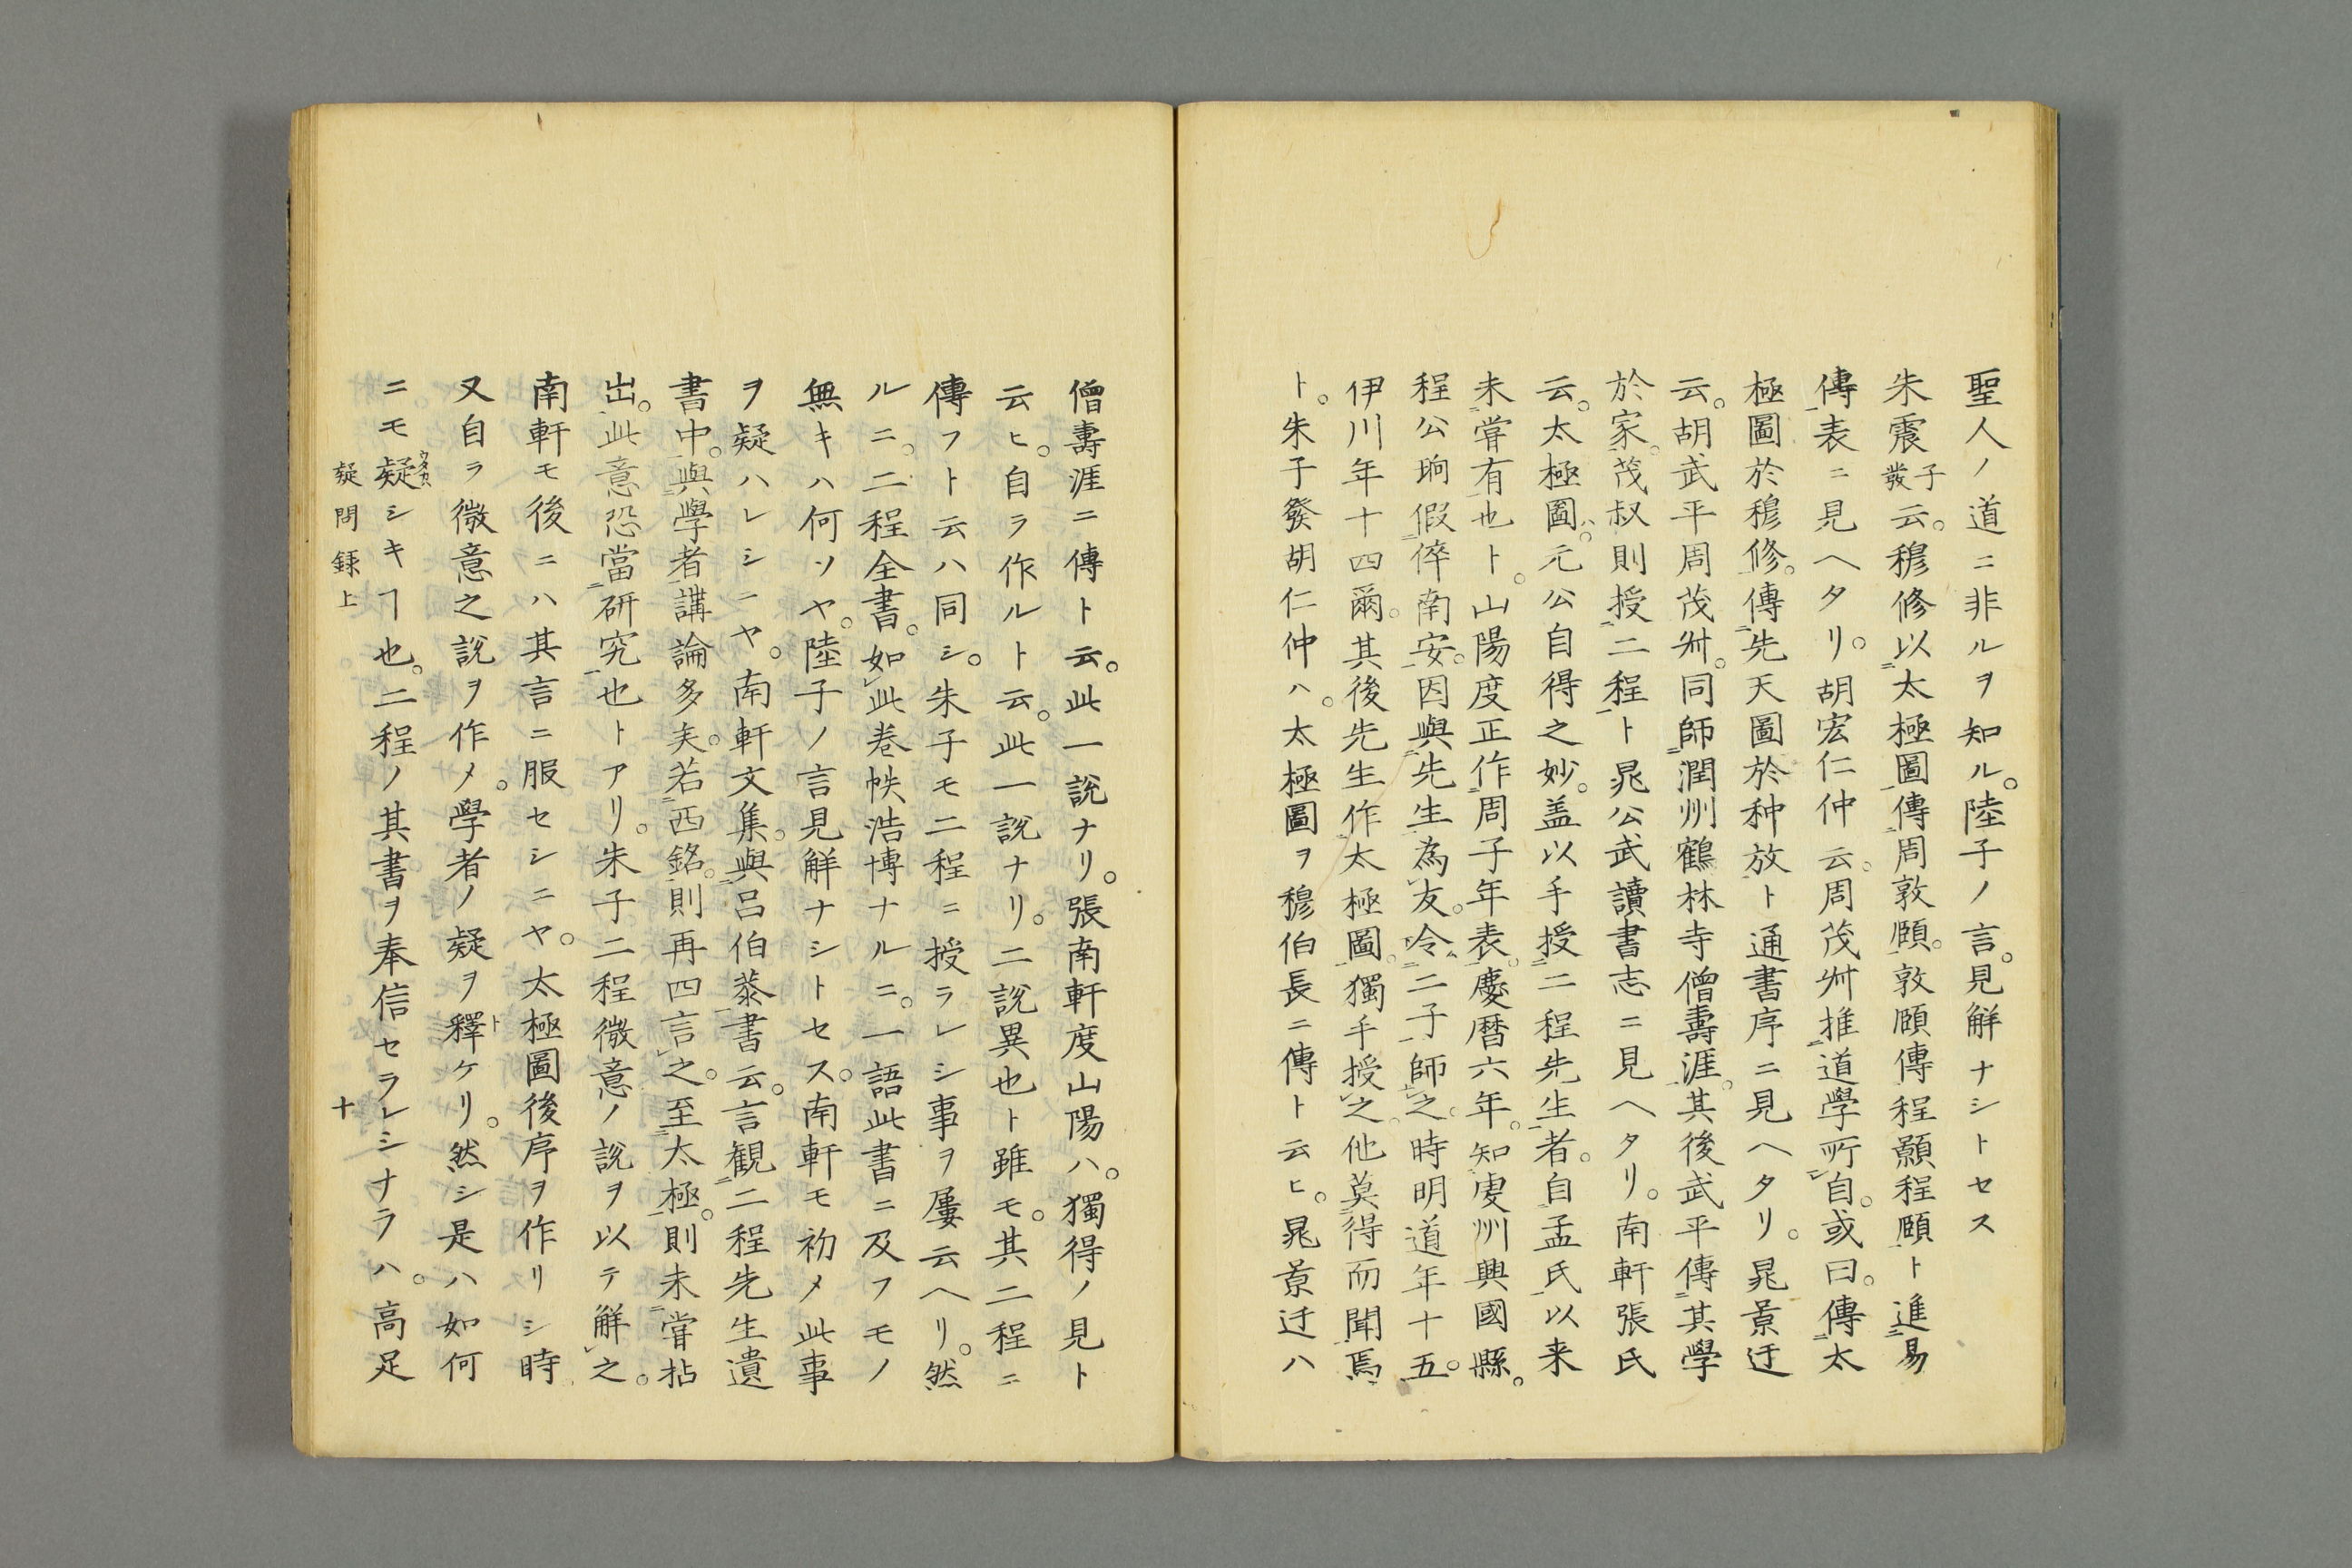 聖人ノ道ニ非ルヲ知ル。陸子ノ言。見解ナシトセス
朱震子發云。穆修以太極圖傳周敦頤。敦頤傳程顥程頤ト進易
傳表ニ見ヘタリ。胡宏仁仲云。周茂舛推道學所自。或曰。傳太
極圖於穆修。傳先天圖於种放ト通書序ニ見ヘタリ。晁景迂
云。胡武平周茂舛。同師潤州鶴林寺僧壽涯。其後武平傳其學
於家。茂叔則授二程ト晁公武讀書志ニ見ヘタリ。南軒張氏
云。太極圖ハ。元公自得之妙。盖以手授二程先生者。自孟氏以来
未甞有也ト。山陽度正作周子年表。慶暦六年。知虔州興國縣。
程公珦假倅南安。因與先生為友。令二子師之。時明道年十五。
伊川年十四爾。其後先生作太極圖。獨手授之。他莫得而聞焉
ト。朱子發胡仁仲ハ。太極圖ヲ穆伯長ニ傳ト云ヒ。晁景迂ハ
僧壽涯ニ傳ト云。此一說ナリ。張南軒度山陽ハ。獨得ノ見ト
云ヒ。自ラ作ルト云。此一說ナリ。二說異也ト雖モ。其二程ニ
傳フト云ハ同シ。朱子モ二程ニ授ラレシ事ヲ屢云ヘリ。然
ルニ。二程全書。如此卷帙浩博ナルニ。一語此書ニ及フモノ
無キハ何ソヤ。陸子ノ言見解ナシトセス。南軒モ初メ此事
ヲ疑ハレシニヤ。南軒文集。與呂伯恭書云。言観二程先生遺
書中。與學者講論多矣。若西銘。則再四言之。至太極。則未甞拈
出。此意恐當研究也トアリ。朱子二程微意ノ說ヲ以テ解之。
南軒モ後ニハ其言ニ服セシニヤ。太極圖後序ヲ作リシ時
又自ラ微意之說ヲ作メ。學者ノ疑ヲ釋トケリ。然シ是ハ如何
ニモ疑シキヿ也。二程ノ其書ヲ奉信セラレシナラハ。高足
疑問録上　十